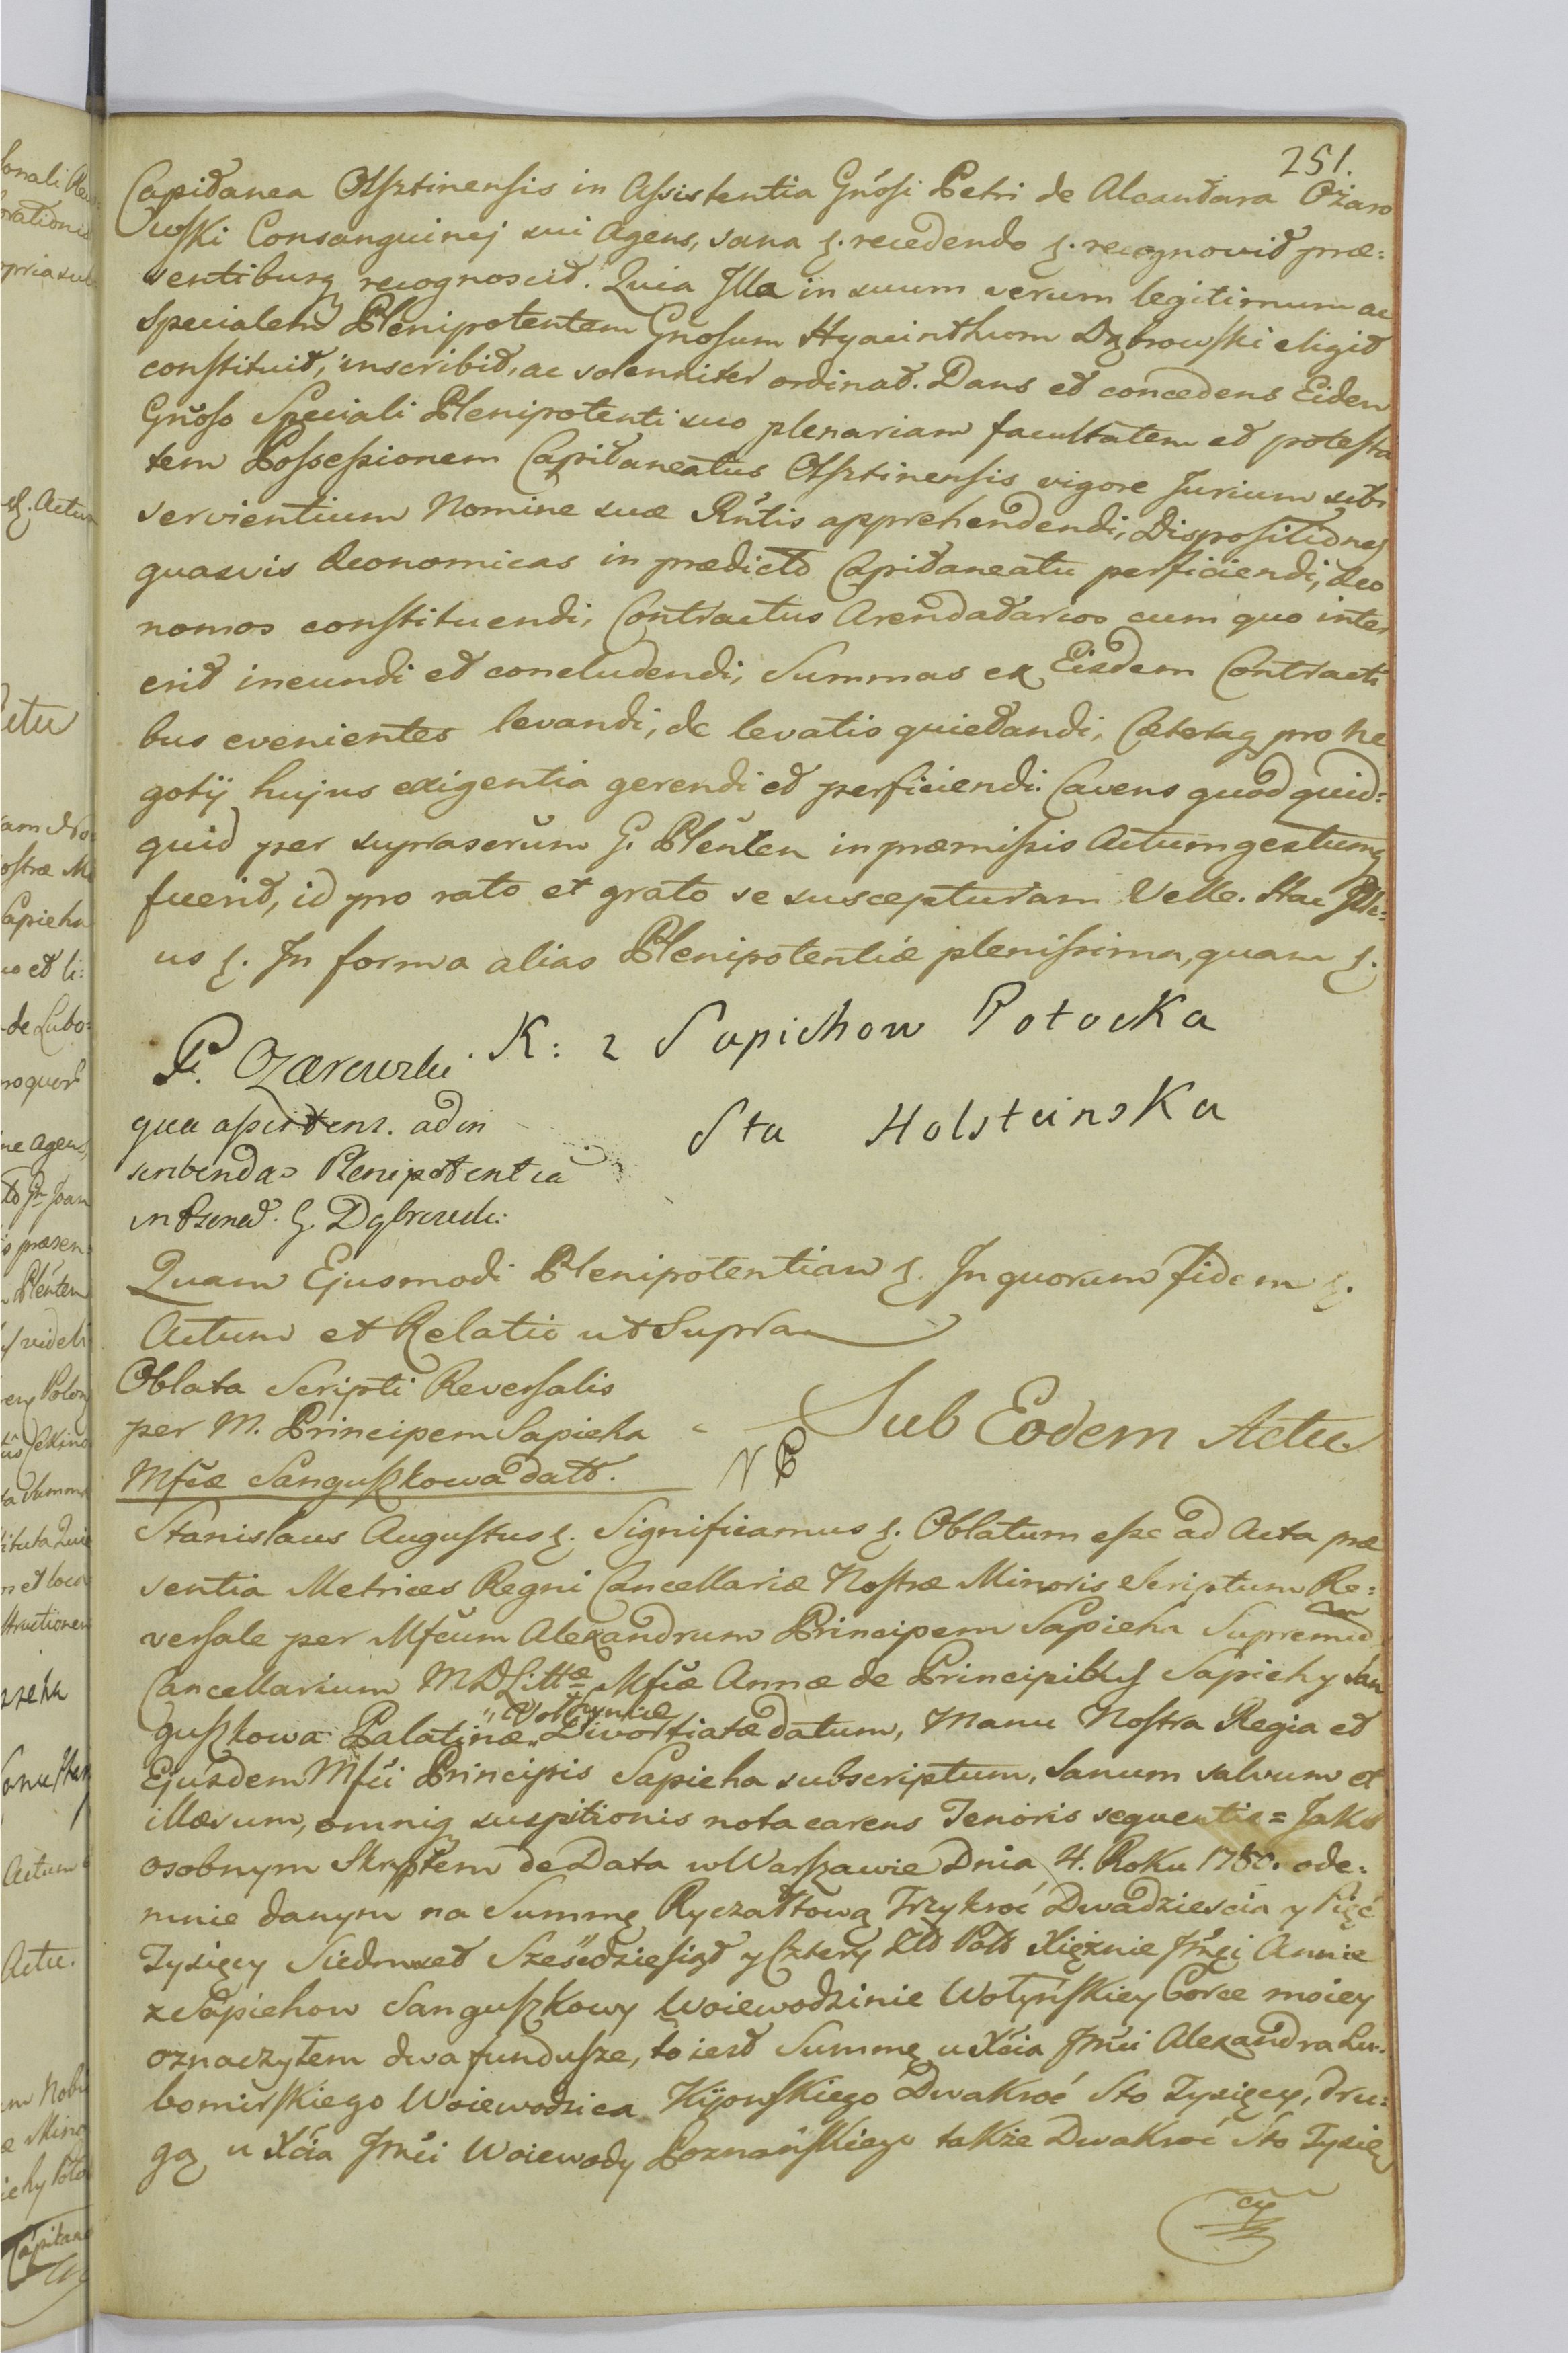 251.
Capitanea Olsztinensis in Assistentia Gnosi Petri de Alcantara Ożaro
wski Consanguinej sui Agens, sana &. recedendo &. recognovit præ:
sentibusq recognoscit. Quia Illa in suum verum legitimum ac
Specialem Plenipotentem Gnosum Hyacinthum Dąbrowski eligit
constituit, inscribit, ac solenniter ordinat. Dans et concedens Eidem
Gnoso Speciali Plenipotenti suo plenariam facultatem et potesta
tem Possessionem Capitaneatus Olsztinensis vigore Jurium sibi
servientium Nomine suæ Rntis apprehendendi, Dispositiones
quasvis Æconomicas in prædicto Capitaneatu perficiendi, Æco
nomos constituendi, Contractus Arendatarios cum quo inter
erit ineundi et concludendi, Summas ex Eisdem Contracti
bus evenientes levandi, de levatis quietandi, Cæteraq pro ne
gotij hujus exigentia gerendi et perficiendi. Cavens quod quid:
quid per suprascrum G. Plenten in præmissis Actum gestumq
fuerit, id pro rato et grato se suscepturam Velle. Hac
us &. In forma alias Plenipotentiæ plenissima, quam &.
K: z Sapiehow Potocka
P. Ozarowski
Sta Holsteinska
qua assistens. ad in
scribendam Plenipotentia
G. Dąbrowski
Quam Ejusmodi Plenipotentiam &. In quorum fidem &.
Actum et Relatio ut Supra
Oblata Scripti Reversalis
per M. Principem Sapieha
Mfcæ Sanguszkowa dati.
Sub Eodem Actu
Stanislaus Augustus &. Significamus &. Oblatum esse ad Acta præ
sentia Metrices Regni Cancellariæ Nostræ Minoris Scriptum Re:
versale per Mfcum Alexandrum Principem Sapieha Supremum
Cancellarium M D Littæ Mfcæ Annæ de Principibus Sapiehy San
guszkowa Palatinæ „Volhyniæ„ Divortiatæ datum, Manu Nostra Regia et
Ejusdem Mfci Principis Sapieha subscriptum, Sanum salvum et
illæsum, omniq suspitionis nota carens Tenoris sequentis = Jako
osobnym Skryptem de Data w Warszawie Dnia 4. Roku 1780. ode:
mnie danym na Summę Ryczałtową Trzykroć Dwadziescia y Pięć
Tysięcy Siedmset Sześćdziesiąt y Cztery Złt Pols Xiężnie Jmci Annie
z Sapiehow Sanguszkowy Woiewodzinie Wołyńskiey Corce moiey
oznaczyłem dwa fundusze, to iest Summę u Xcia Jmci Alexandra Lu:
bomirskiego Woiewodzica Kijowskiego Dwakroć Sto Tysięcy, dru:
gą u Xcia Jmci Woiewody Poznańskiego także Dwakroć Sto Tysię
cy